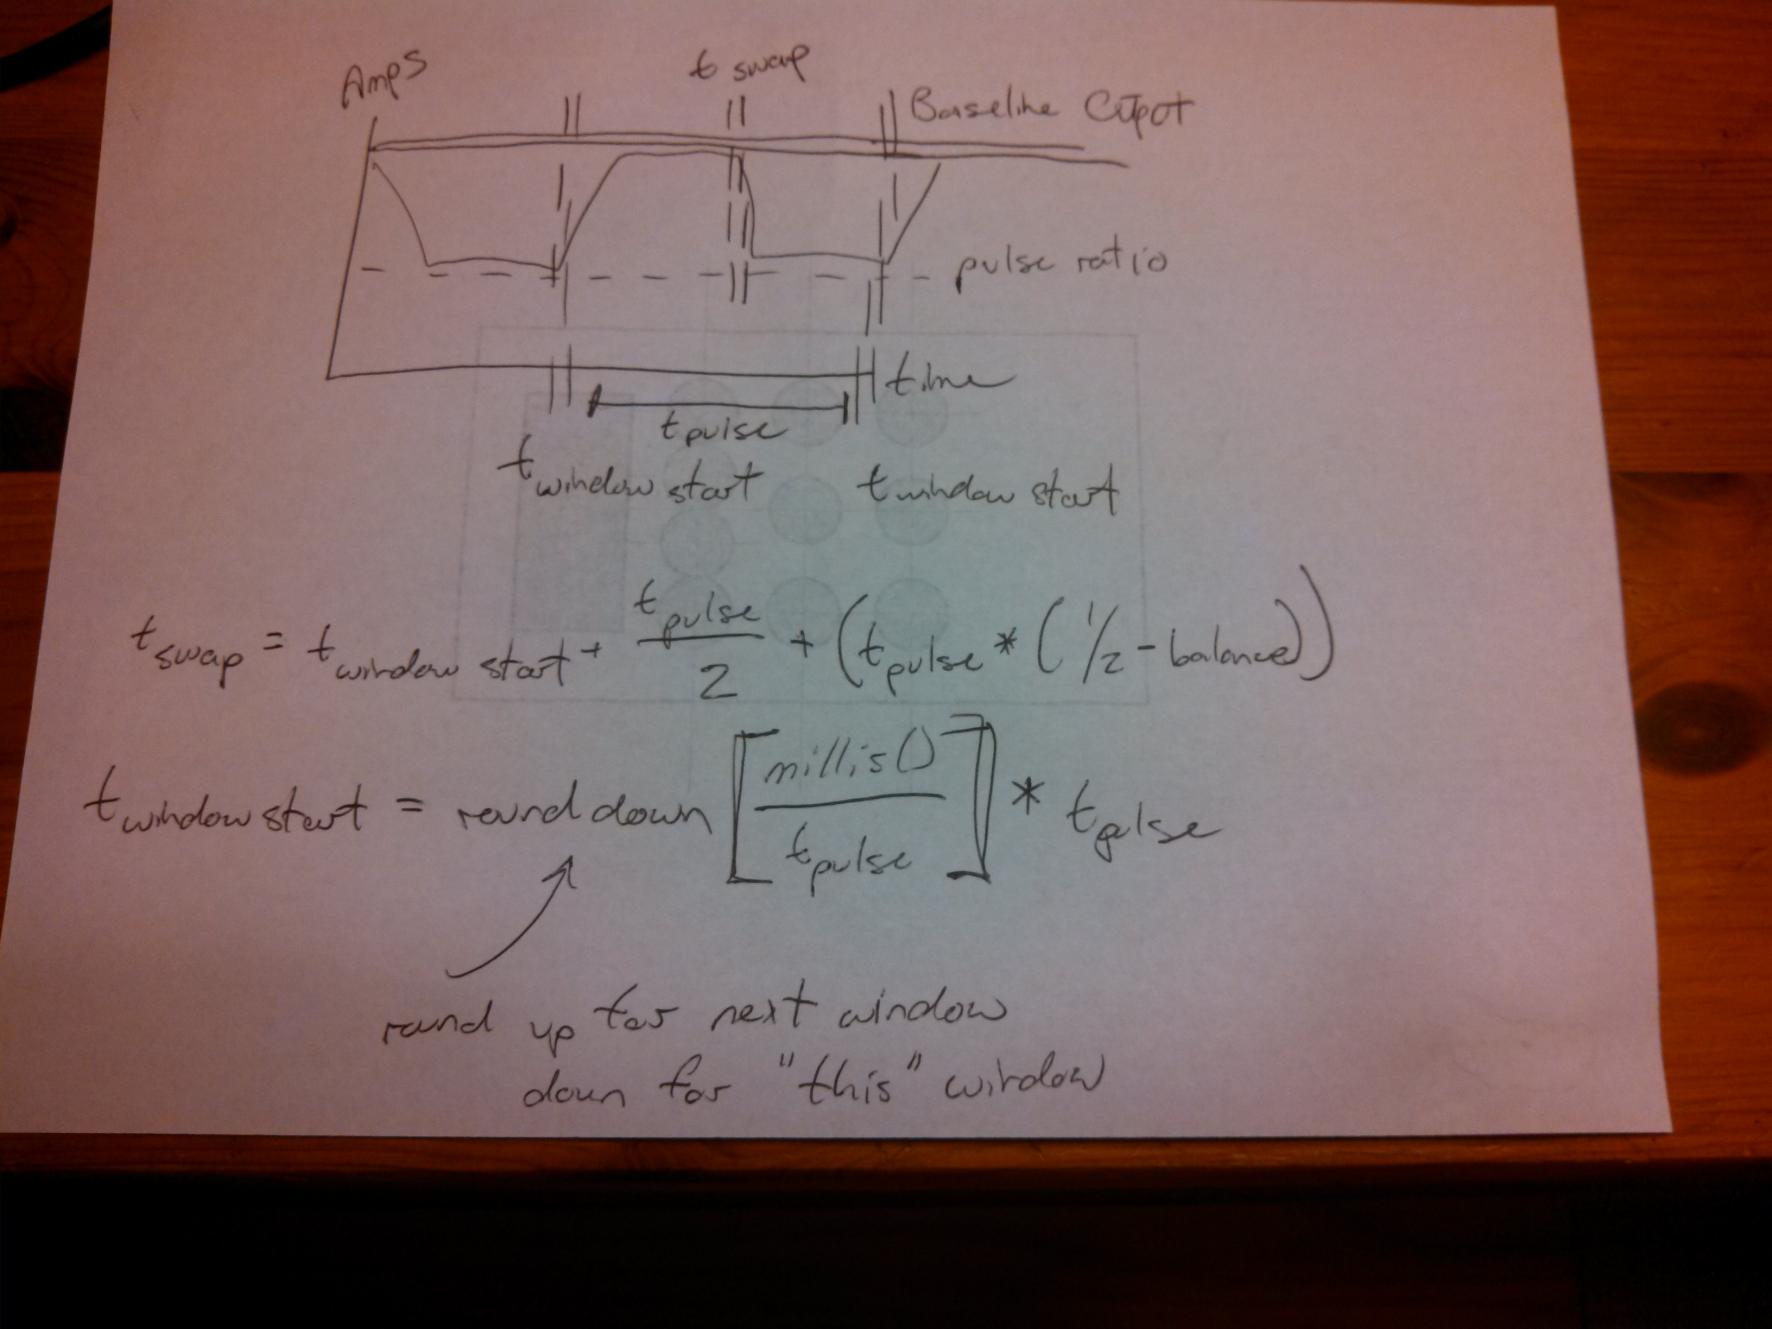 Amps
t swap
Baseline
pulse ratio
time
t pulse
t window start
t window start
t swap = t window start + t pulse / 2 + (t pulse * (1/2 - balance))
t window start = round down [millis() / t pulse] * t pulse
round up for next window
down for "this" window